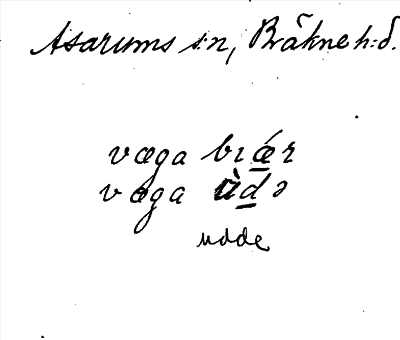 Asarums s:n, Bräkne h:d.
væga bıǽr
væga ùdə
udde